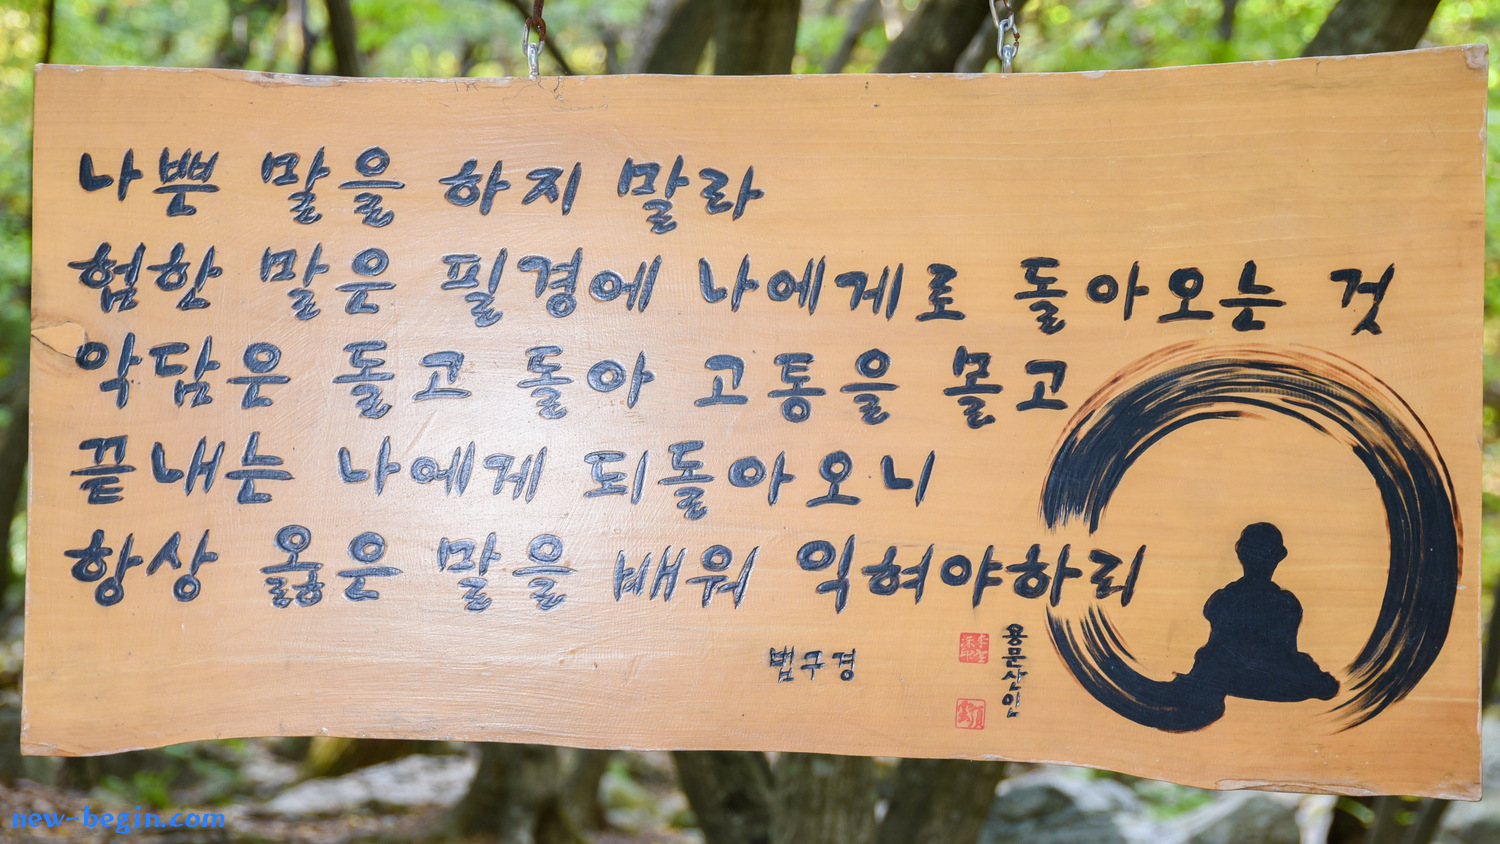 나쁜 말을 하지 말라
험한 말은 필경에 나에게로 돌아오는 것
악담은 돌고 돌아 고통을 몰고
끝내는 나에게 되돌아오니
항상 옳은 말을 배워 익혀야하리
법구경
용문산인
new-begin.com